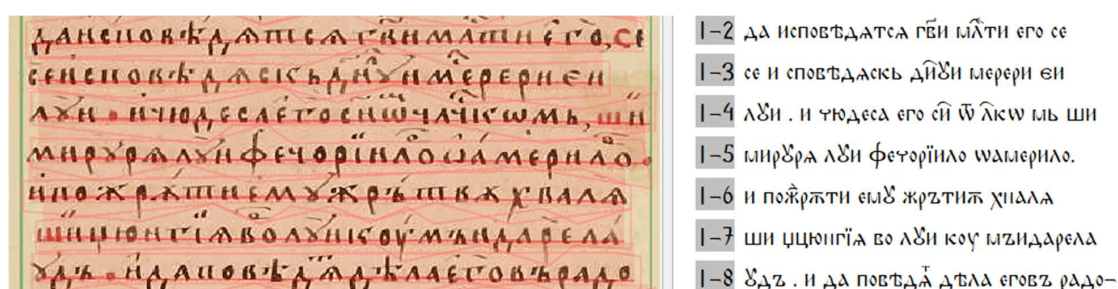 да исповѣдѧтсѧ гв҃и мл҃ти его, се
се исповѣдѧскь дн҃ꙋи мерери еи
лꙋи . и чюдеса его сн҃ѡ чл҃чкѡмь, ши
мирꙋрѧ лꙋи фечорїило ѡамерило.
и пожрѫти емꙋ жрътвѫ хвалѧ
во лꙋи
ꙋдъ . и да повѣдѧ дѣла его въ радо
1-2 да исповѣдѧтсѧ гв҃и мл҃ти его се
1-3 се и сповѣдѧскь дй҃ꙋи мерери еи
1-4 лꙋи . и чюдеса его сй҃ ѿ л҃кѡ мь ши
1-5 мирꙋрѧ лꙋи фечорїило ѡамерило.
1-6 и пожр҃ѫти емꙋ жрътиѫ хналѧ
1-7 ши џцюнгїѧ во лꙋи коу мъидарела
1-8 ꙋдъ . и да повѣдѧⷮ дѣла еговъ радо-